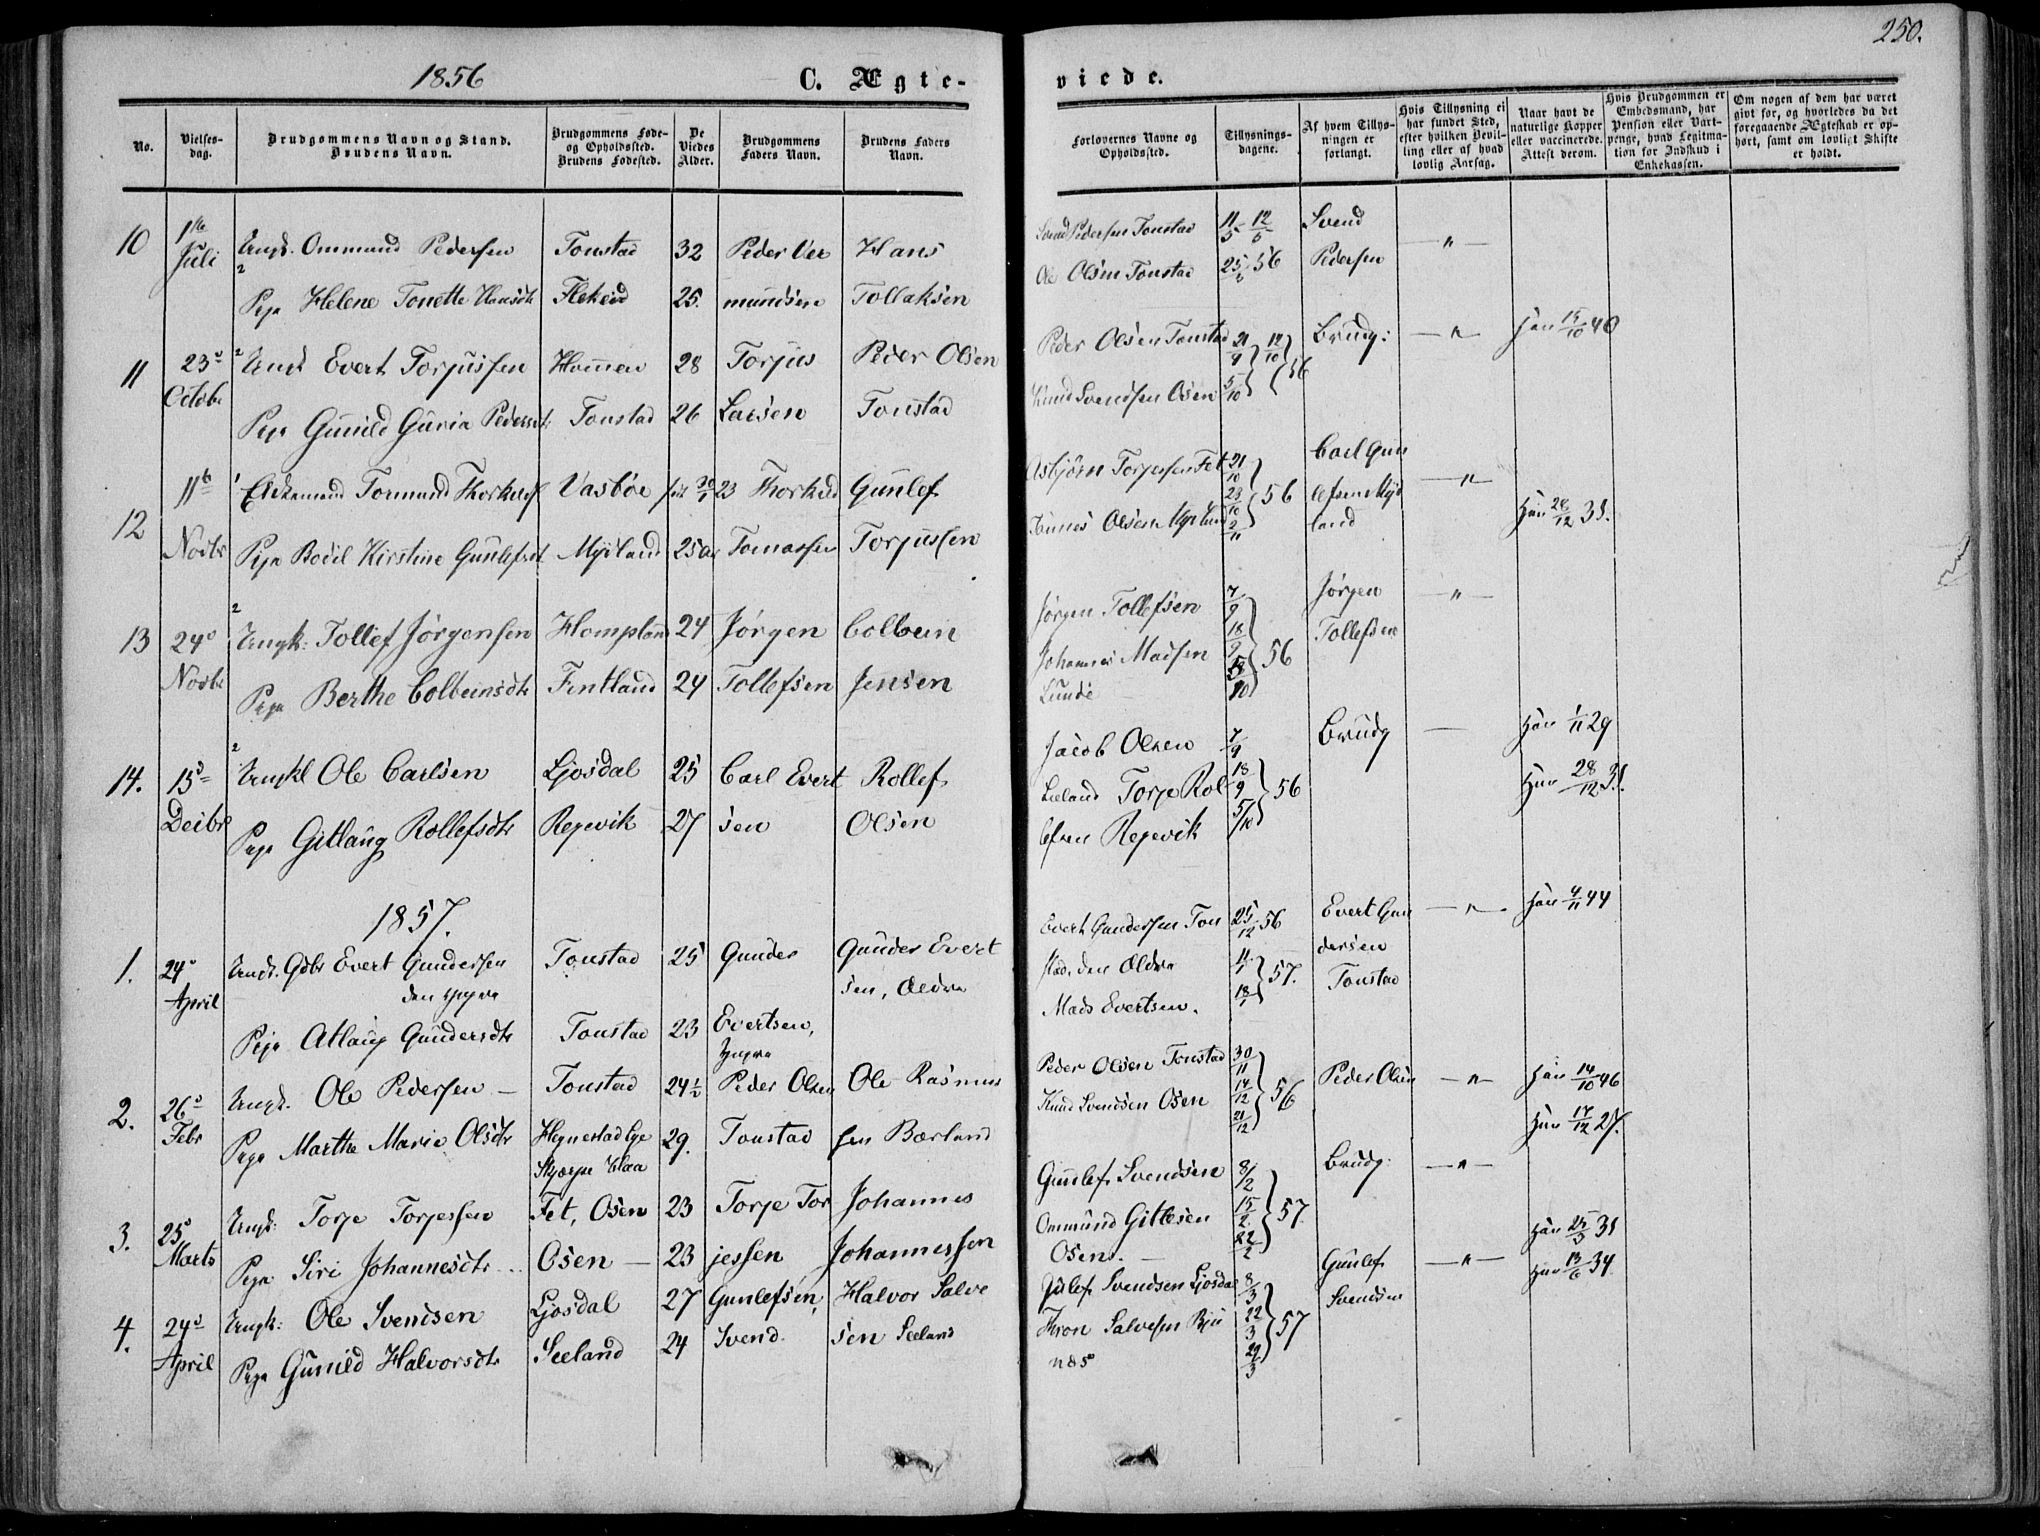 250.
1856
C. Ægte-
viede.
No.
Vielses-
dag.
Brudgommens Navn og Stand.
Brudens Navn.
Brudgommens Føde-
og Opholdssted.
Brudens Fødested.
De
Viedes
Alder.
Brudgommens
Faders Navn.
Brudens Faders
Navn.
Forlovernes Navne og
Opholdssted.
Tillysnings-
dagene.
Af hvem Tillys-
ningen er
forlangt.
Hvis Tillysning ei
har fundet Sted,
efter hvilken Bevil-
ling eller af hvad
lovlig Aarsag.
Naar havt de
naturlige Kopper
eller vaccinerede.
Attest derom.
Hvis Brudgommen er
Embedsmand, har
Pension eller Vart-
penge, hvad Legitima-
tion for Indskud i
Enkekassen.
Om nogen af dem har været
givt før, og hvorledes da det
foregaaende Ægteskab er op-
hørt, samt om lovligt Skifte
er holdt.
10 Juli Ungk. Ommund Pedersen Tonstad 32 Peder Hans
Svend Pedersen Tonstad 11/5 12/5 Svend — " —
Pige Helene Tonette Hansdtr 25. mundsen Tollaksen
Ole Olsen Tonstad 56 Pedersen
11 23 Ungk Evert Torjussen Homen 28 Torjus Peder Olsen
Peder Olsen Tonstad 21/9 12/10 56 Brudg: — " — Han 40
Octobr Pige Gunild Guria Pedersdtr Tonstad 26 Larsen Tonstad
Knud Svendsen Osen 5/10
12 11 Enkemand Tormund Thorkelds Vasbøe 23 Thorkild Gunlef
Asbjørn Torjussen Fet 21/10 Carl Gun — " —
Novbr Pige Bodil Kirstine Gunlefsdt Myiland 25 Tomassen Torjussen
Olsen Myiland 56 lefsen Myi
land Hun 28/12 31.
13 24 Ungk: Tollef Jørgensen Hompland 24 Jørgen Colbein
Jørgen Tollefsen 7/9 Jørgen — " —
Novbr Pige Berthe Colbeinsdtr Fintland 24 Tollefsen Jensen
Johannes Madsen 18/9 56 Tollefsen
Lunde
14. 15 Ungkl Ole Carlsen Ljosdal 25 Carl Evert Rollef
Jacob Olsen 7/9 Brudg — Han 1/11 29
Deibr Pige Gitlaug Rollefsdtr Regevik 27 sen Olsen
Torje Rol 18/9 56 Hun 28/12 31.
lefsen Regevik 5/10
1857.
1. 24 Ungk. Gdbr Evert Gundersen Tonstad 25 Gunder Gunder Evert
Evert Gundersen Ton 25/12 56 Evert Gun — " — Han 4/11 44
April den yngre sen, Ældre
stad, den Ældre 57. dersen
Pige Atlaug Gundersdtr Tonstad 23 Evertsen,
yngre
Mads Evertsen. 18/1 Tonstad
2. 26 Ungk. Ole Pedersen — Tonstad 24½ Peder Olsen Ole Rasmus
Peder Olsen Tonstad 30/11 Peder Olsen — " — Han 14/10 46
Febr Pige Marthe Marie Olsdtr 29. Tonstad sen Bærland
Knud Svendsen Osen 14/12 21/12 56 Hun 17/12 27.
3. 25 Ungk: Torje Torjessen Fet, Osen 23 Torje Tor Johannes
Gunlef Svendsen 8/2 Brudg: — " —
Marts Pige Siri Johannesdtr Osen — 23 jessen Johannessen
Ommund Gitlesen 15/2 57. Han 25/3 35
Osen. 22/2 Hun 13/6 34
4. 24 Ungk: Ole Svendsen Ljosdal 27 Gunlefsen, Halvor Salve
Svendsen Ljosdal 8/3 Gunlef — " —
April Pige Gunild Halvorsdtr Seeland 24 Svend. sen Seeland
Salvesen 22/3 57 Svendsen
29/3